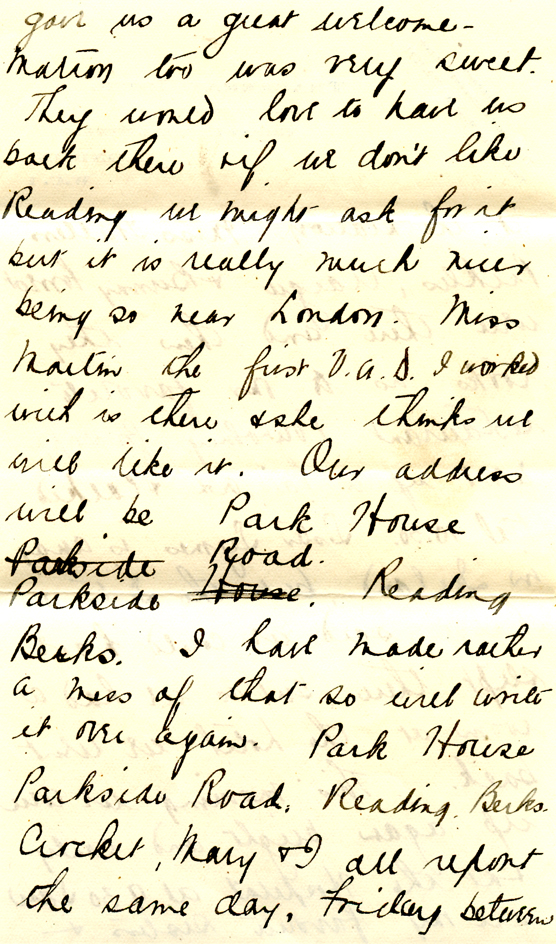 gave us a great welcome -
Matron too was very sweet.
They would love to have us
back there & if we don't like
Reading we might ask for it
but it is really much nicer
being so near London. Miss
Martin the first V.A.D. I worked
with is there & she thinks we
will like it. Our address
will be Park House
Parkside Road.
Parkside House. Reading
Berks. I have made rather
a mess of that so will write
it over again. Park House
Parkside Road. Reading. Berks.
Crocket, Mary & I all report
the same day, Friday between